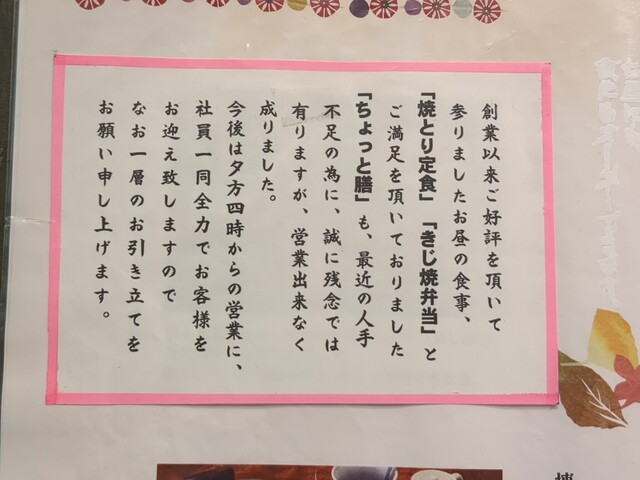 創業以来ご好評を頂いて
参りましたお昼の食事、
「焼とり定食」「きじ焼弁当」と
ご満足を頂いておりました
「ちょっと膳」も、最近の人手
不足の為に、誠に残念では
有りますが、営業出来なく
成りました。
今後は夕方四時からの営業に、
社員一同全力でお客様を
お迎え致しますので
なお一層のお引き立てを
お願い申し上げます。